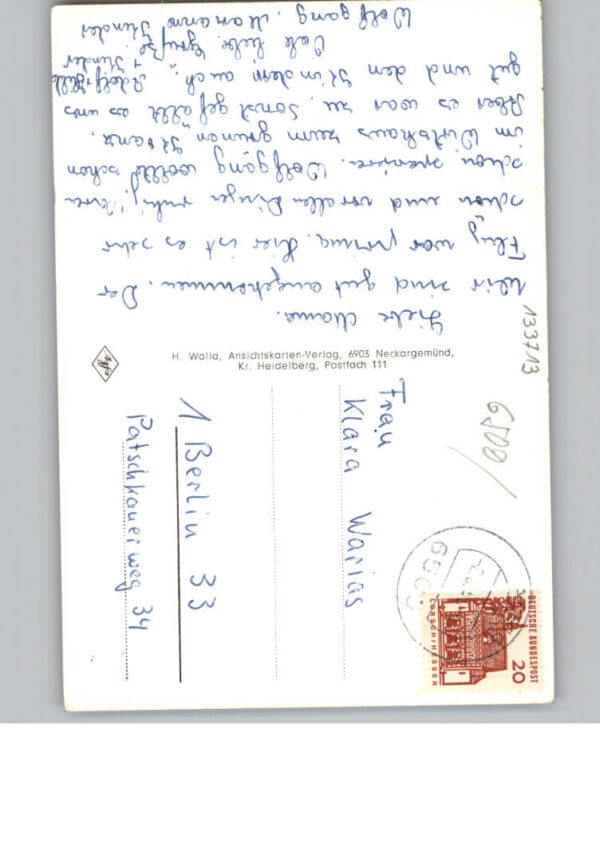 Liebe Mama.
Wir sind gut angekommen. Der
Flug war prima. Hier ist es sehr
schön und vor allen Dingen ruhig,
schön spazieren. Wolfgang wollte schon
im Wirtshaus zum grünen Kranz.
Aber es war zu. Sonst gefällt es uns
gut und den Kindern auch.
Viele liebe Grüße
Wolfgang, Marianne
Kinder
+ Kinder
H. Walla, Ansichtskarten-Verlag, 6903 Neckargemünd,
Kr. Heidelberg, Postfach 111
Agfa
Frau
Klara Warias
1 Berlin 33
Patschkauerweg 34
1337/13
6500/
DEUTSCHE BUNDESPOST
20
LORSCH/HESSEN